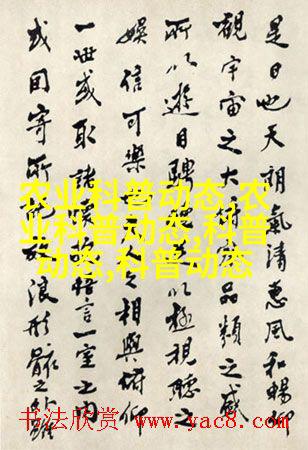 是日也天朗氣清惠風和暢仰
觀宇宙之大俯察品類之盛
所以遊目騁懷足以極視聽之
娛信可樂也夫人之相與俯仰
一世或取諸懷抱悟言一室之內
或因寄所託放浪形骸之外雖
农业科普动态,农
业科普动态,科普
动态,科普动态
书法欣赏 www.yac8.com